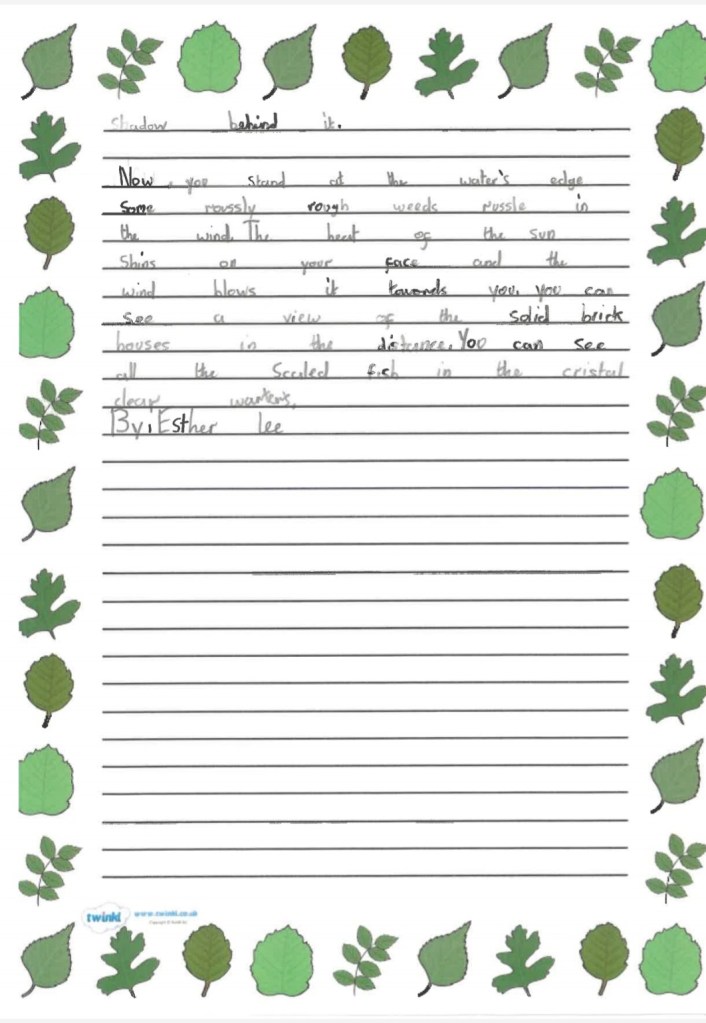 Shadow behind it.
Now, you stand at the water's edge
Some roussly rough weeds russle in
the wind. The heat of the sun
Shins on your face and the
wind blows it towards you. you can
see a view of the solid brick
houses in the distance. You can see
all the Scaled fich in the cristal
clear warters.
By, Esther Lee
twinkl www.twinkl.co.uk